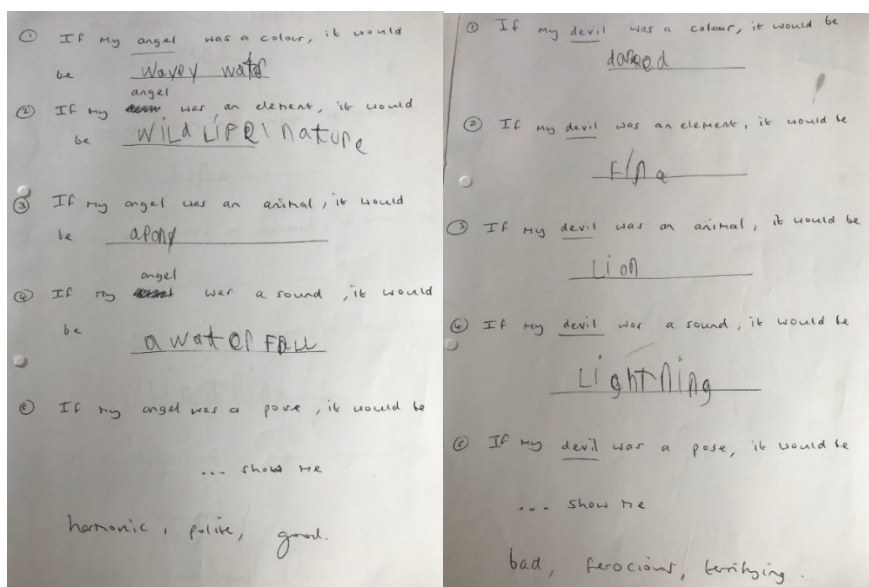 ① If my angel was a colour, it would
be wavey water
angel
② If my was an element, it would
be WiLd LiFe \ nature
③ If my angel was an animal, it would
be apony
angel
④ If my was a sound, it would
be a water FALL
⑤ If my angel was a pose, it would be
... show me
harmonic, polite, good.
① If my devil was a colour, it would be
② If my devil was an element, it would be
③ If my devil was an animal, it would be
Lion
④ If my devil was a sound, it would be
Lightning
⑤ If my devil was a pose, it would be
... show me
bad, ferocious, terrifying.